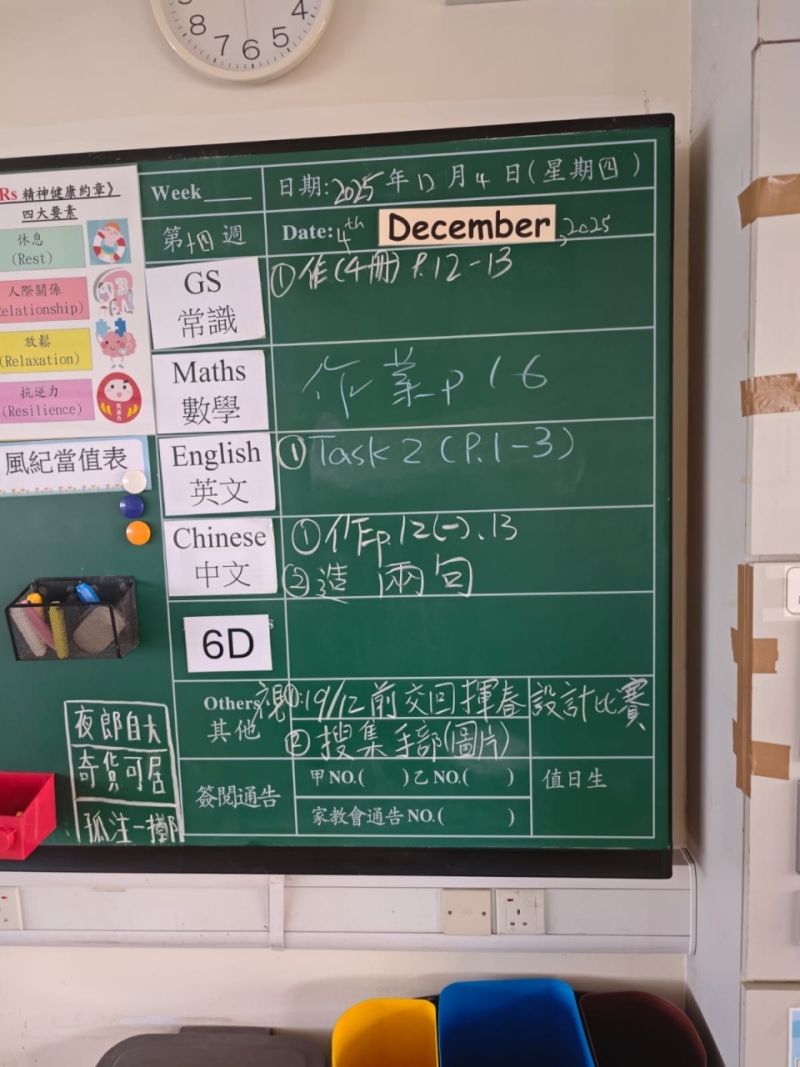 8 7 6 5 4
Rs 精神健康約章》
四大要素
休息
(Rest)
人際關係
Relationship)
放鬆
(Relaxation)
抗逆力
(Resilience)
風紀當值表
Week____ 日期:2025年12月4日(星期四)
第十四週 Date: 4th December, 2025
GS
常識
①作(4冊) P.12-13
Maths
數學
作業p16
English
英文
①Task 2 (P.1-3)
Chinese
中文
①作p.12(一)、13
②造 兩句
6D
Others
其他
視①:19/12前交回揮春設計比賽
②搜集手部(圖片)
簽閱通告
甲NO.( )乙NO.( )
家教會通告NO.( )
值日生
夜郎自大
奇貨可居
孤注一擲